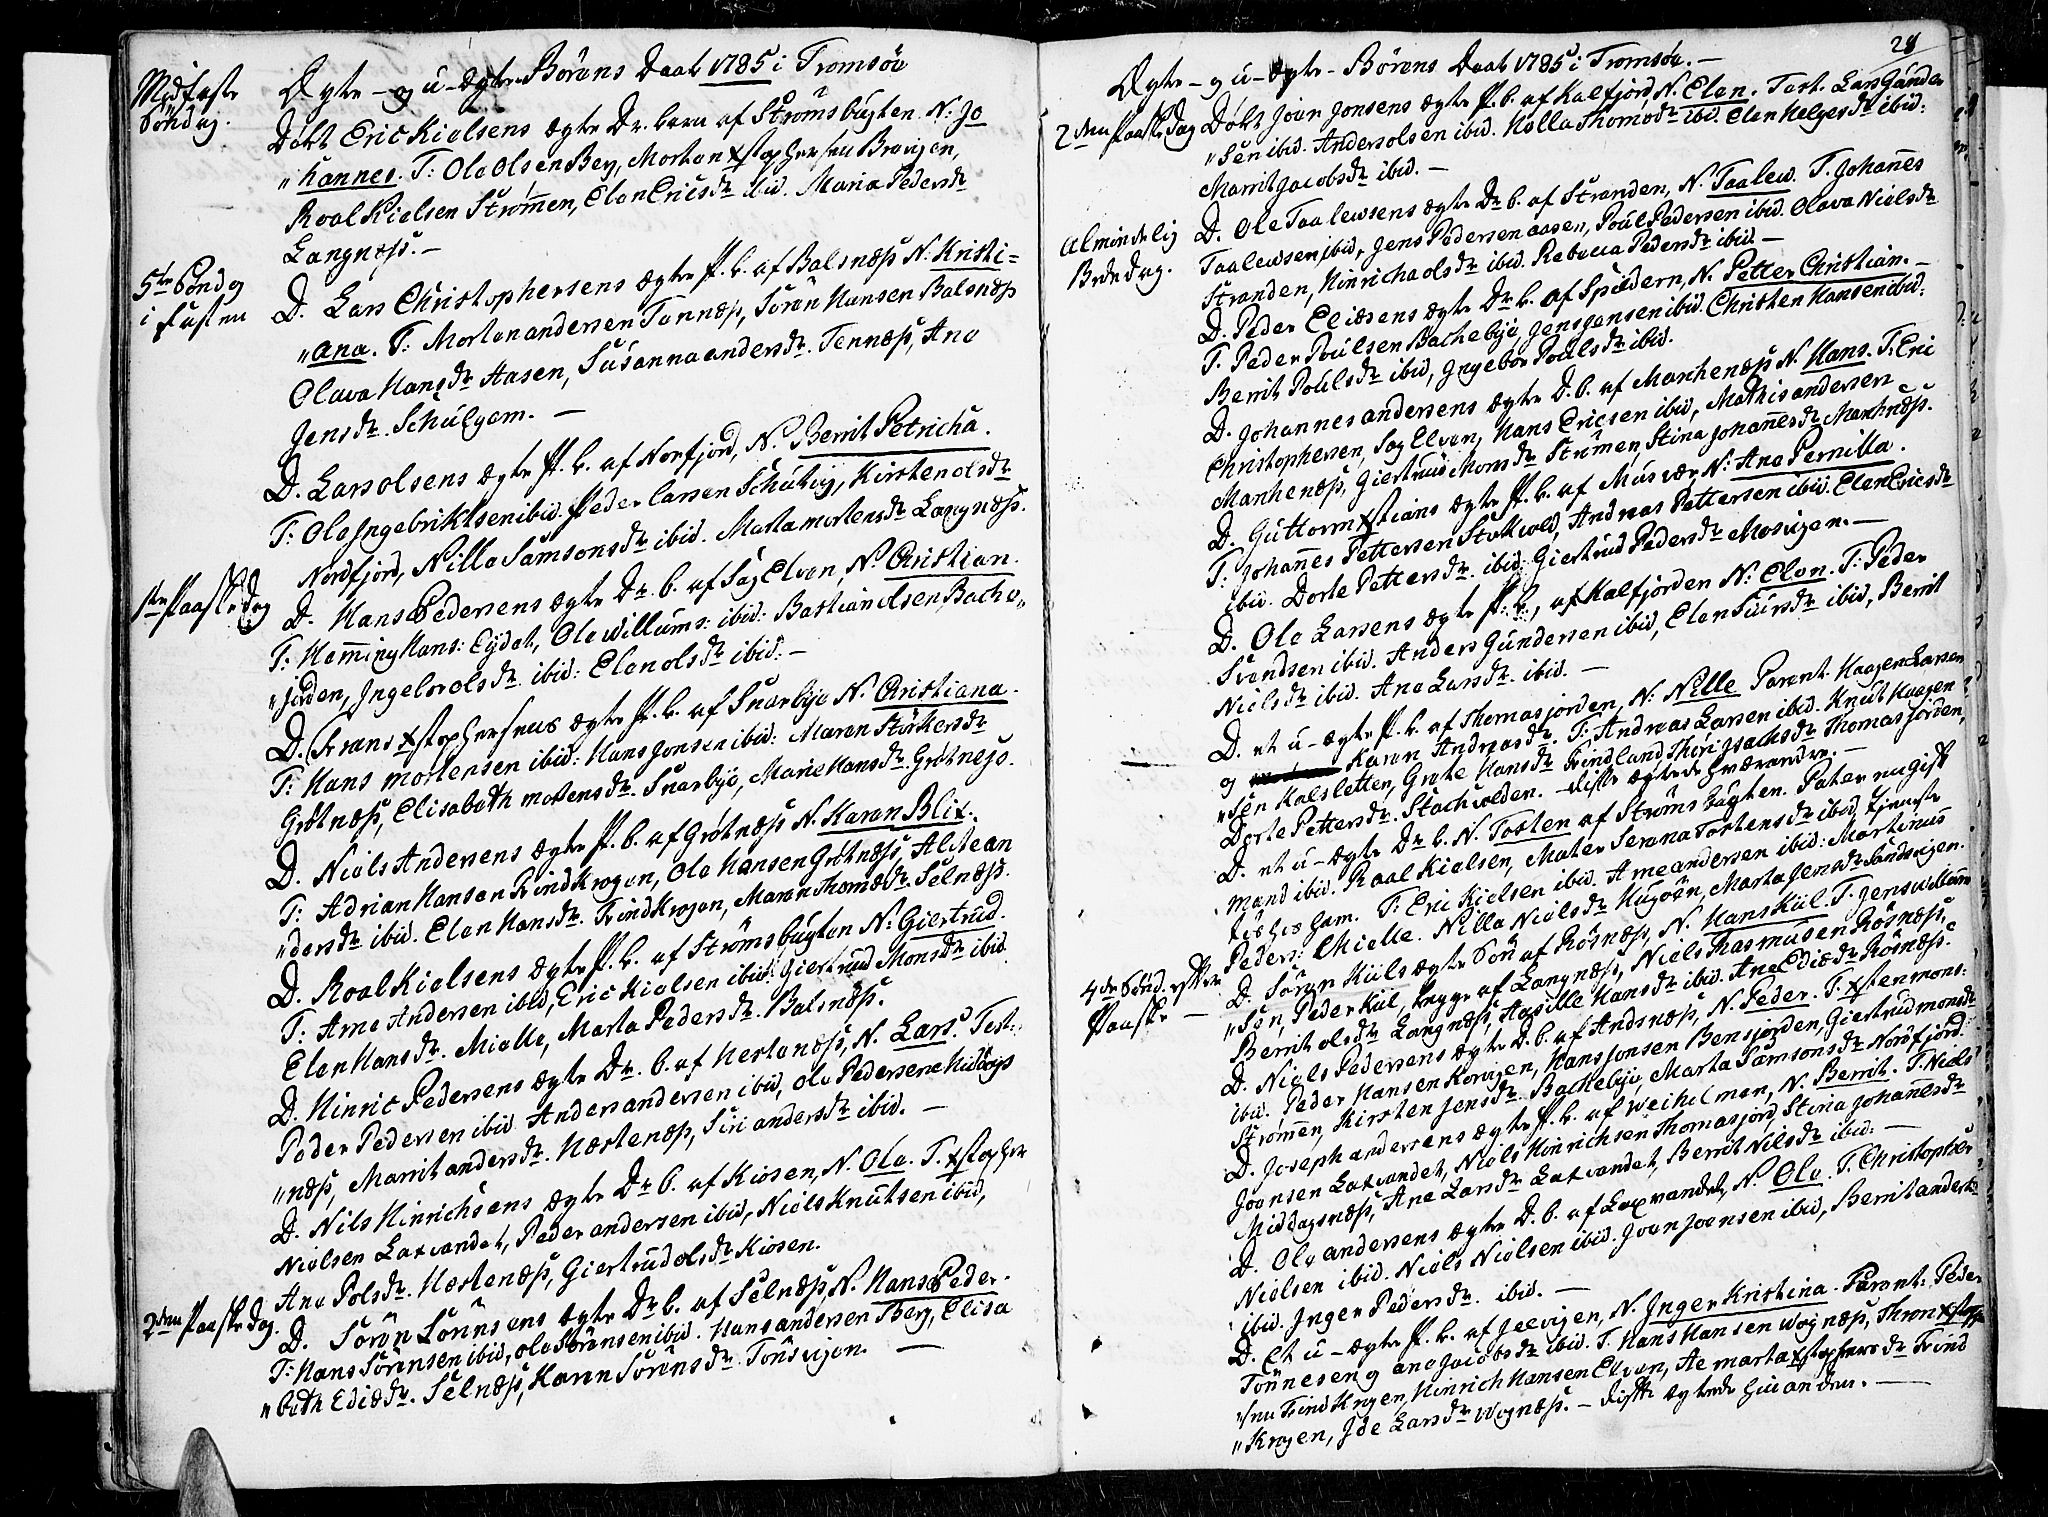 Midfaste Søndag.
Ægte - og u - Ægte Børens Daab 1785 i Tromsöe
Døbt Eric Kielsens ægte Dr. barn af Strømsbugten N: Jo
"hannes. T: Ole Olsen Berg, Morten Xstophersen Bravigen,
Roal Kielsen Strømmen, Elen Ericsdr ibid. Maria Pedersdr
Langnæss. -
5te Søndag i Fasten
D. Lars Christophersens ægte P. b. af Balsnæss N: Kristi=
"ana. T: Morten andersen Tennæss, Sören Hansen Balsnæss
Olava Hansdr Aasen, Susanna andersdr. Tennæss, Ane
Jensdr. Schulgam. -
D. Lars olsens ægte P. b. af Norfjord, N. Berrit Petricha.
T: Ole Ingebriktsen ibid. Peder Larsen Schutvig, Kirsten olsdr
Nordfjord, Nilla Samsonsdr ibid. Marta mortensdr Langnæss.
1ste Paaske Dag
D. Hans Pedersens ægte Dr. b. af Sag Elven, N. Christian.
T: Heming Hans: Eydet, Ole Willums: ibid: Bastian olsen Bache,,
"jorden, Ingebor olsdr. ibid: Elen olsdr ibid: -
D. Frans Xstophersens ægte P. b. af Snarbye N. Christiana.
T: Hans mortensen ibid: Hans Jonsen ibid: Maren Störkersdr
Grötnæss, Elisabeth mortensdr. Snarbye, Marie Hansdr. Grötness.
D. Niels Andersens ægte P. b. af Grötnæss N. Karen Blix.
T: Adrian Hansen Trindkrogen, Ole Hansen Grötnæss, Alet an
"dersdr ibid. Elen Hansdr. Trindkrogen, Maren Thomædr. Selnæss.
D. Roal Kielsens ægte P. b. af Strömsbugten N: Giertrud.
T: Arne Andersen ibid, Eric Kielsen ibid. Giertrud Monsdr ibid.
Elen Hansdr. Mielle, Marta Pedersdr. Balsnæss.
D. Hinric Pedersens ægte Dr. b. af Hestenæss, N. Lars. Test:
Peder Pedersen ibid. Anders andersen ibid, Ole Pedersen Midags
"næss, Marrit andersdr. Hæstenæss, Siri andersdr ibid. -
D. Nils Hinrichsens ægte Dr b. af Kiosen, N. Ole. T. Xstopher
Nielsen Laxvandet, Peder andersen ibid, Niels Knutsen ibid,
Ane Polsdr. Hæstenæss, Giertrud olsdr Kiosen.
2den Paaske Dag.
D. Sörön Sörensens ægte Dr b. af Selnæss N. Hans Peder.
T: Hans Sörensen ibid, ole Sörensen ibid. Hans andersen Berg, Elisa
"beth Ediædr. Selnæss, Karen Sörensdr. Tönsvigen. -
28
Ægte - og u - Ægte - Börens Daab 1785 i Tromsöe. -
2den Paaske Dag
Døbt Joen Jonsens ægte P. b. af Kalfjord, N. Elen. Test. Lars Gunder
"sen ibid. Anders olsen ibid. Nilla Thomædr ibid. Elen Helgesdr ibid:
Marrit Jacobsdr ibid. -
Almindelig Bededag.
D. Ole Taalevsens ægte Dr b. af Stranden, N. Taalew. T. Johannes
Taalewsen ibid, Jens Pedersen aasen, Poul Pedersen ibid. Olava Nielsdr
Stranden, Hinricha olsdr ibid. Rebecca Pedersdr ibid. -
D. Peder Eliæsens ægte Dr b. af Spildern, N. Petter Christian. -
T. Peder Poulsen Bachebye, Jens Jensen ibid. Christen Hansen ibid:
Berrit Poulsdr ibid, Ingebor Poulsdr ibid.
D. Johannes andersens ægte D. b. af Manhenæss N. Hans. T. Eric
Christophersen, Sag Elven, Hans Ericsen ibid, Mathis andersen
Manhenæss, Giertrud Monsdr Strømen, Stina Johannesdr Manhnæss.
D. Guttorm Xstians ægte P. b. af Musvær, N: Ane Pernilla.
T: Johannes Pettersen Stakvold, Andreas Pettersen ibid. Elen Ericsdr
ibid. Dorte Pettersdr. ibid: Giertrud Pedersdr Mosvigen. -
D. Ole Larsens ægte P. b., af Kalfjorden N: Elen. T: Peder
Svendsen ibid. Anders Gundersen ibid, Elen Siursdr ibid, Berrit
Nielsdr ibid. Ane Larsdr. ibid. -
D. et u - ægte P. b. af Thomasjorden, N: Nille Parent. Haagen Larsen
og Karen Andreasdr. T: Andreas Larsen ibid. Knut Haagen
"sen Kalsletten, Grete Hansdr Trindland, Thori Isachsdr Thomasjorden,
Dorte Pettersdr. Stachvolden. - disse ægtede hverandre. -
D. et u - ægte Dr b. N. Tosten af Strömsbugten. Pater en gift
mand ibid. Roal Kielsen, Mater Serena Tostensdr ibid, tjeneste
T: Eric Kielsen ibid. Arne andersen ibid: Martinus
Peders: Mielle. Nilla Nielsdr Hugöen, Marta Jensdr Sandvigen.
4de Sönd. efter Paaske -
D. Sören Kiils ægte Sön af Rösnæss, N. Hans Kiil. T: Jens Willum
"sön, Peder Kiil, begge af Langnæss, Niels Rasmusen Rösnæss,
Berrit olsdr Langnæss, Hansdr ibid. Ane Ediædr Rösnæss.
D. Niels Pedersens ægte D. b. af Andsnæss, N. Peder. T. Xsten mons:
ibid. Peder Hansen Korvigen, Hans Jonsen Bensjorden, Giertrud monsdr
Strömen, Kirsten Jensdr. Bachebye, Marta Samsonsdr Nordfjord.
D. Joseph andersens ægte P. b. af Weiholmen, N. Berrit. T. Niels
Joensen Laxvandet, Niels Hinrichsen Thomasjord, Stina Johannesdr
Middagsnæss, Ane Larsdr Laxvandet, Berrit Nilsdr ibid: -
D. Ole andersens ægte D. b. af Laxvandet, N. Ole. T. Christopher
Nielsen ibid. Niels Nielsen ibid. Joen Joensen ibid, Berrit andersdr
ibid. Inger Pedersdr. ibid. -
D. Et u - ægte P. b. af Jeevigen, N. Inger Kristina. Parent: Peder
Tönnesen og ane Jacobsdr ibid. T. Hans Hansen Wognæss, Thron Xstoph
"sen Trindkrogen, Hinrich Hansen Elven, Ae marta Xstophersdr Trind
"krogen, Ide Larsdr Wognæss. - disse ægtede hinanden. -